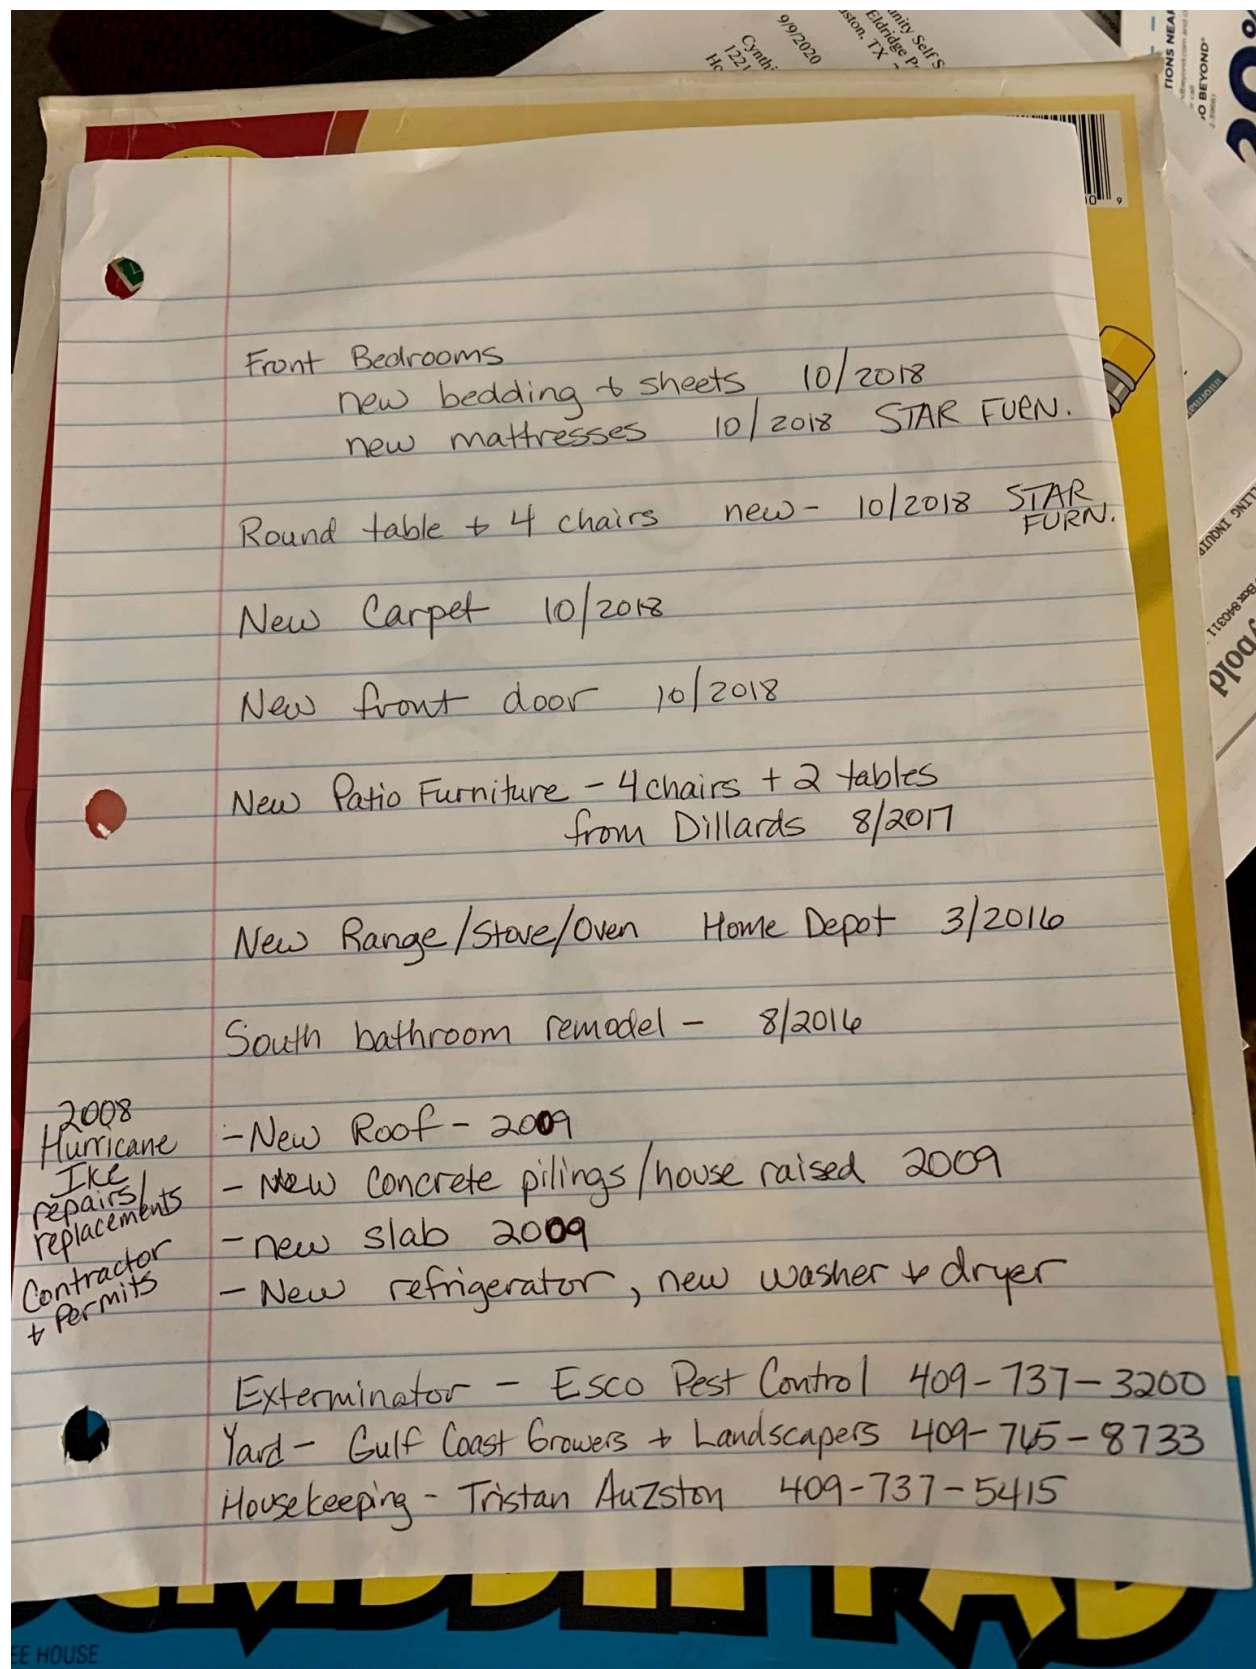 9/9/2020
Cynth
1221
Ho
unity Self S
Eldridge P
ston, TX
TIONS NEAR
O BEYOND®
20%
Front Bedrooms
new bedding + sheets 10/2018
new mattresses 10/2018 STAR FURN.
Round table + 4 chairs new - 10/2018 STAR
FURN.
New Carpet 10/2018
New front door 10/2018
New Patio Furniture - 4 chairs + 2 tables
from Dillards 8/2017
New Range/Stove/Oven Home Depot 3/2016
South bathroom remodel - 8/2016
2008
Hurricane
Ike
repairs/
replacements
Contractor
+ Permits
- New Roof - 2009
- New concrete pilings/house raised 2009
- new slab 2009
- New refrigerator, new washer + dryer
Exterminator - Esco Pest Control 409-737-3200
Yard - Gulf Coast Growers + Landscapers 409-765-8733
Housekeeping - Tristan Auzston 409-737-5415
LLING INQUIR
Box 840311
ybold
EE HOUSE